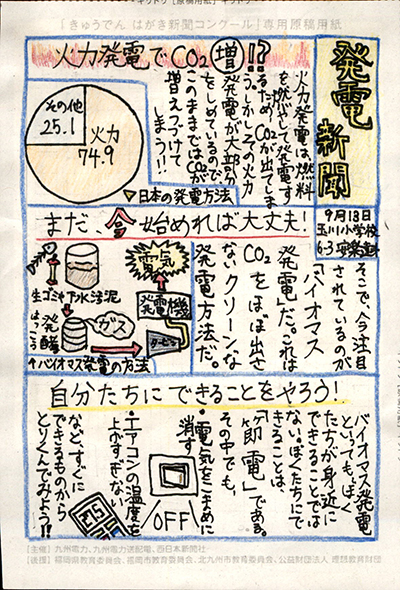 「きゅうでん はがき新聞コンクール」専用原稿用紙
発電新聞
9月18日
玉川小学校
6-3
火力発電でCO2増!?
火力発電は燃料
を燃やして発電す
るため、CO2が出てしま
う。しかし、その火力
発電が大部分
をしめているので、
このままではCO2が
増えつづけて
しまう!!
その他
25.1
火力
74.9
▽日本の発電方法
まだ、今始めれば大丈夫!
そこで、今注目
されているのが
「バイオマス
発電」だ。これは
CO2をほぼ出さ
ないクリーンな
発電方法だ。
電気
生ゴミや下水汚泥
発電機
はっこう
発酵
ガス
タービン
↑バイオマス発電の方法
自分たちにできることをやろう!
バイオマス発電
といっても、ぼく
たちが身近に
できることでは
ない。ぼくたちにで
きることは、
「節電」である。
その中でも、
・電気をこまめに
消す
・エアコンの温度を
上げすぎない
など、すぐに
できるものから
とりくんでみよう!!
OFF
【主催】九州電力、九州電力送配電、西日本新聞社
【後援】福岡県教育委員会、福岡市教育委員会、北九州市教育委員会、公益財団法人 理想教育財団